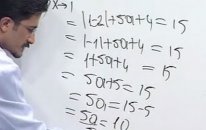 x→1
= |1-2|+5a+4 = 15
= |-1|+5a+4 = 15
= 1+5a+4 = 15
= 5a+5 = 15
= 5a = 15-5
= 5a = 10